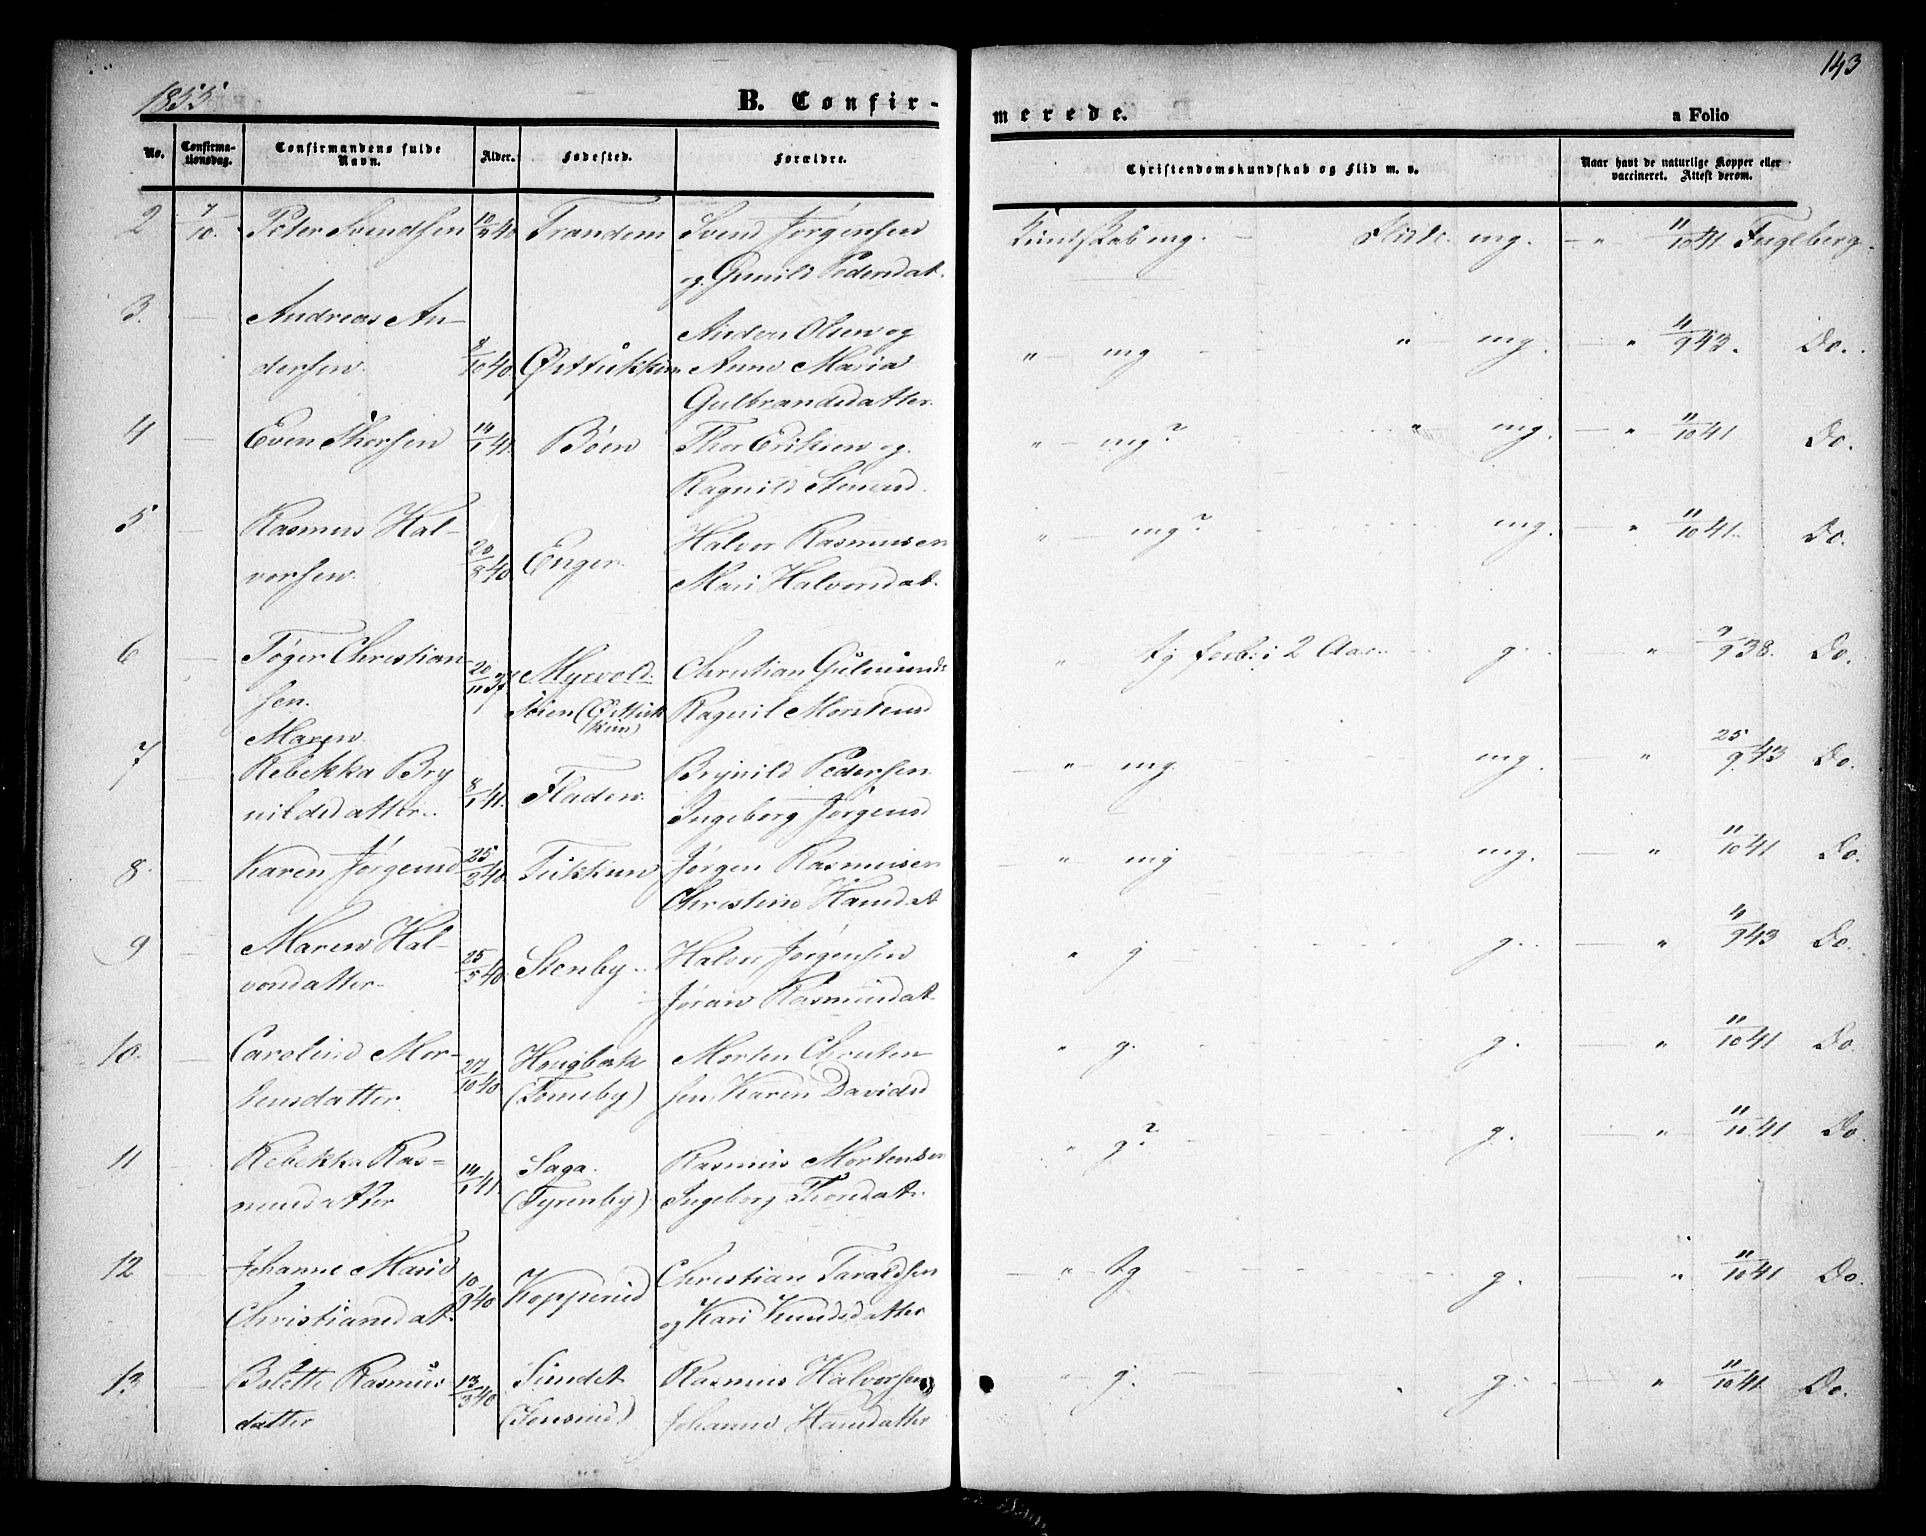 1855.
143
B. Confir-
merede.
a Folio
No.
Confirma-
tionsdag.
Confirmandens fulde
Navn.
Alder.
Fødested.
Forældre.
Christendomskundskab og Flid m. v.
Naar havt de naturlige Kopper eller
vaccineret. Attest derom.
2 7/10. Peter Svendsen 40 Trandem Svend Jørgensen Kundskab mg. — Flid mg. — " 11/10 41 Fugleberg.
og Gunild Pedersdat.
3. — Andreas An-
dersen. 9/10 40. Østtukkun Anders Olsen og " — mg — " mg. — " 4/9 43. Do.
Anne Maria
Gulbrandsdatter.
4 — Even Thorsen 14/1 41. Böen Thor Eriksen og " — mg? " mg. — " 11/10 41 Do.
Ragnild
5 — Rasmus Hal-
vorsen. 20/8 40 Enger. Halvor Rasmusen " — mg? mg. — " 11/10 41. Do.
Mari Halvorsdat.
6 — Töger Christian-
sen. 20/11 37 Myrvold. Christian Gulmunds " tg forb. i 2 Aar. g. " 9/9 38. Do.
Ragnil
7 — Maren
Rebekka Bry
nildsdatter.. 8/1 41. Fladen. Brynild Pedersen — " mg. mg. — " 25/9 43 Do.
Ingeborg Jørgensd
8. — Karen Jørgensd 25/2 40. Tukkun Jørgen Rasmusen — " mg mg. — " 11/10 41 Do.
Christine Hansdat
9 — Maren Hal-
vorsdatter. 25/5 40. Stenby. Halvor Jørgensen " g g. — " 4/9 43 Do.
Jøran Rasmusdat
10. — Caroline Mor-
tensdatter. 27/10 40 Hougbak Morten Christen- " g. g. — " 11/10 41 Do.
(Torneby) sen Karen Davidsd
11 — Rebekka Ras-
musdatter 14/1 41. Saga. Rasmus Mortensen " g? g. — " 11/10 41 Do
(Tyrenby) Ingeborg Thoresdat.
12 — Johanne Marie
Christiansdat. 10/9 40 Kopperud Christian Taraldsen — " tg g. " 11/10 41 Do.
og Kari Knudsdatter
13. — Bolette Rasmus
datter 13/3 40 Sundet Rasmus Halvorsen " g. g. — " 11/10 41 Do.
Johanne Hansdatter